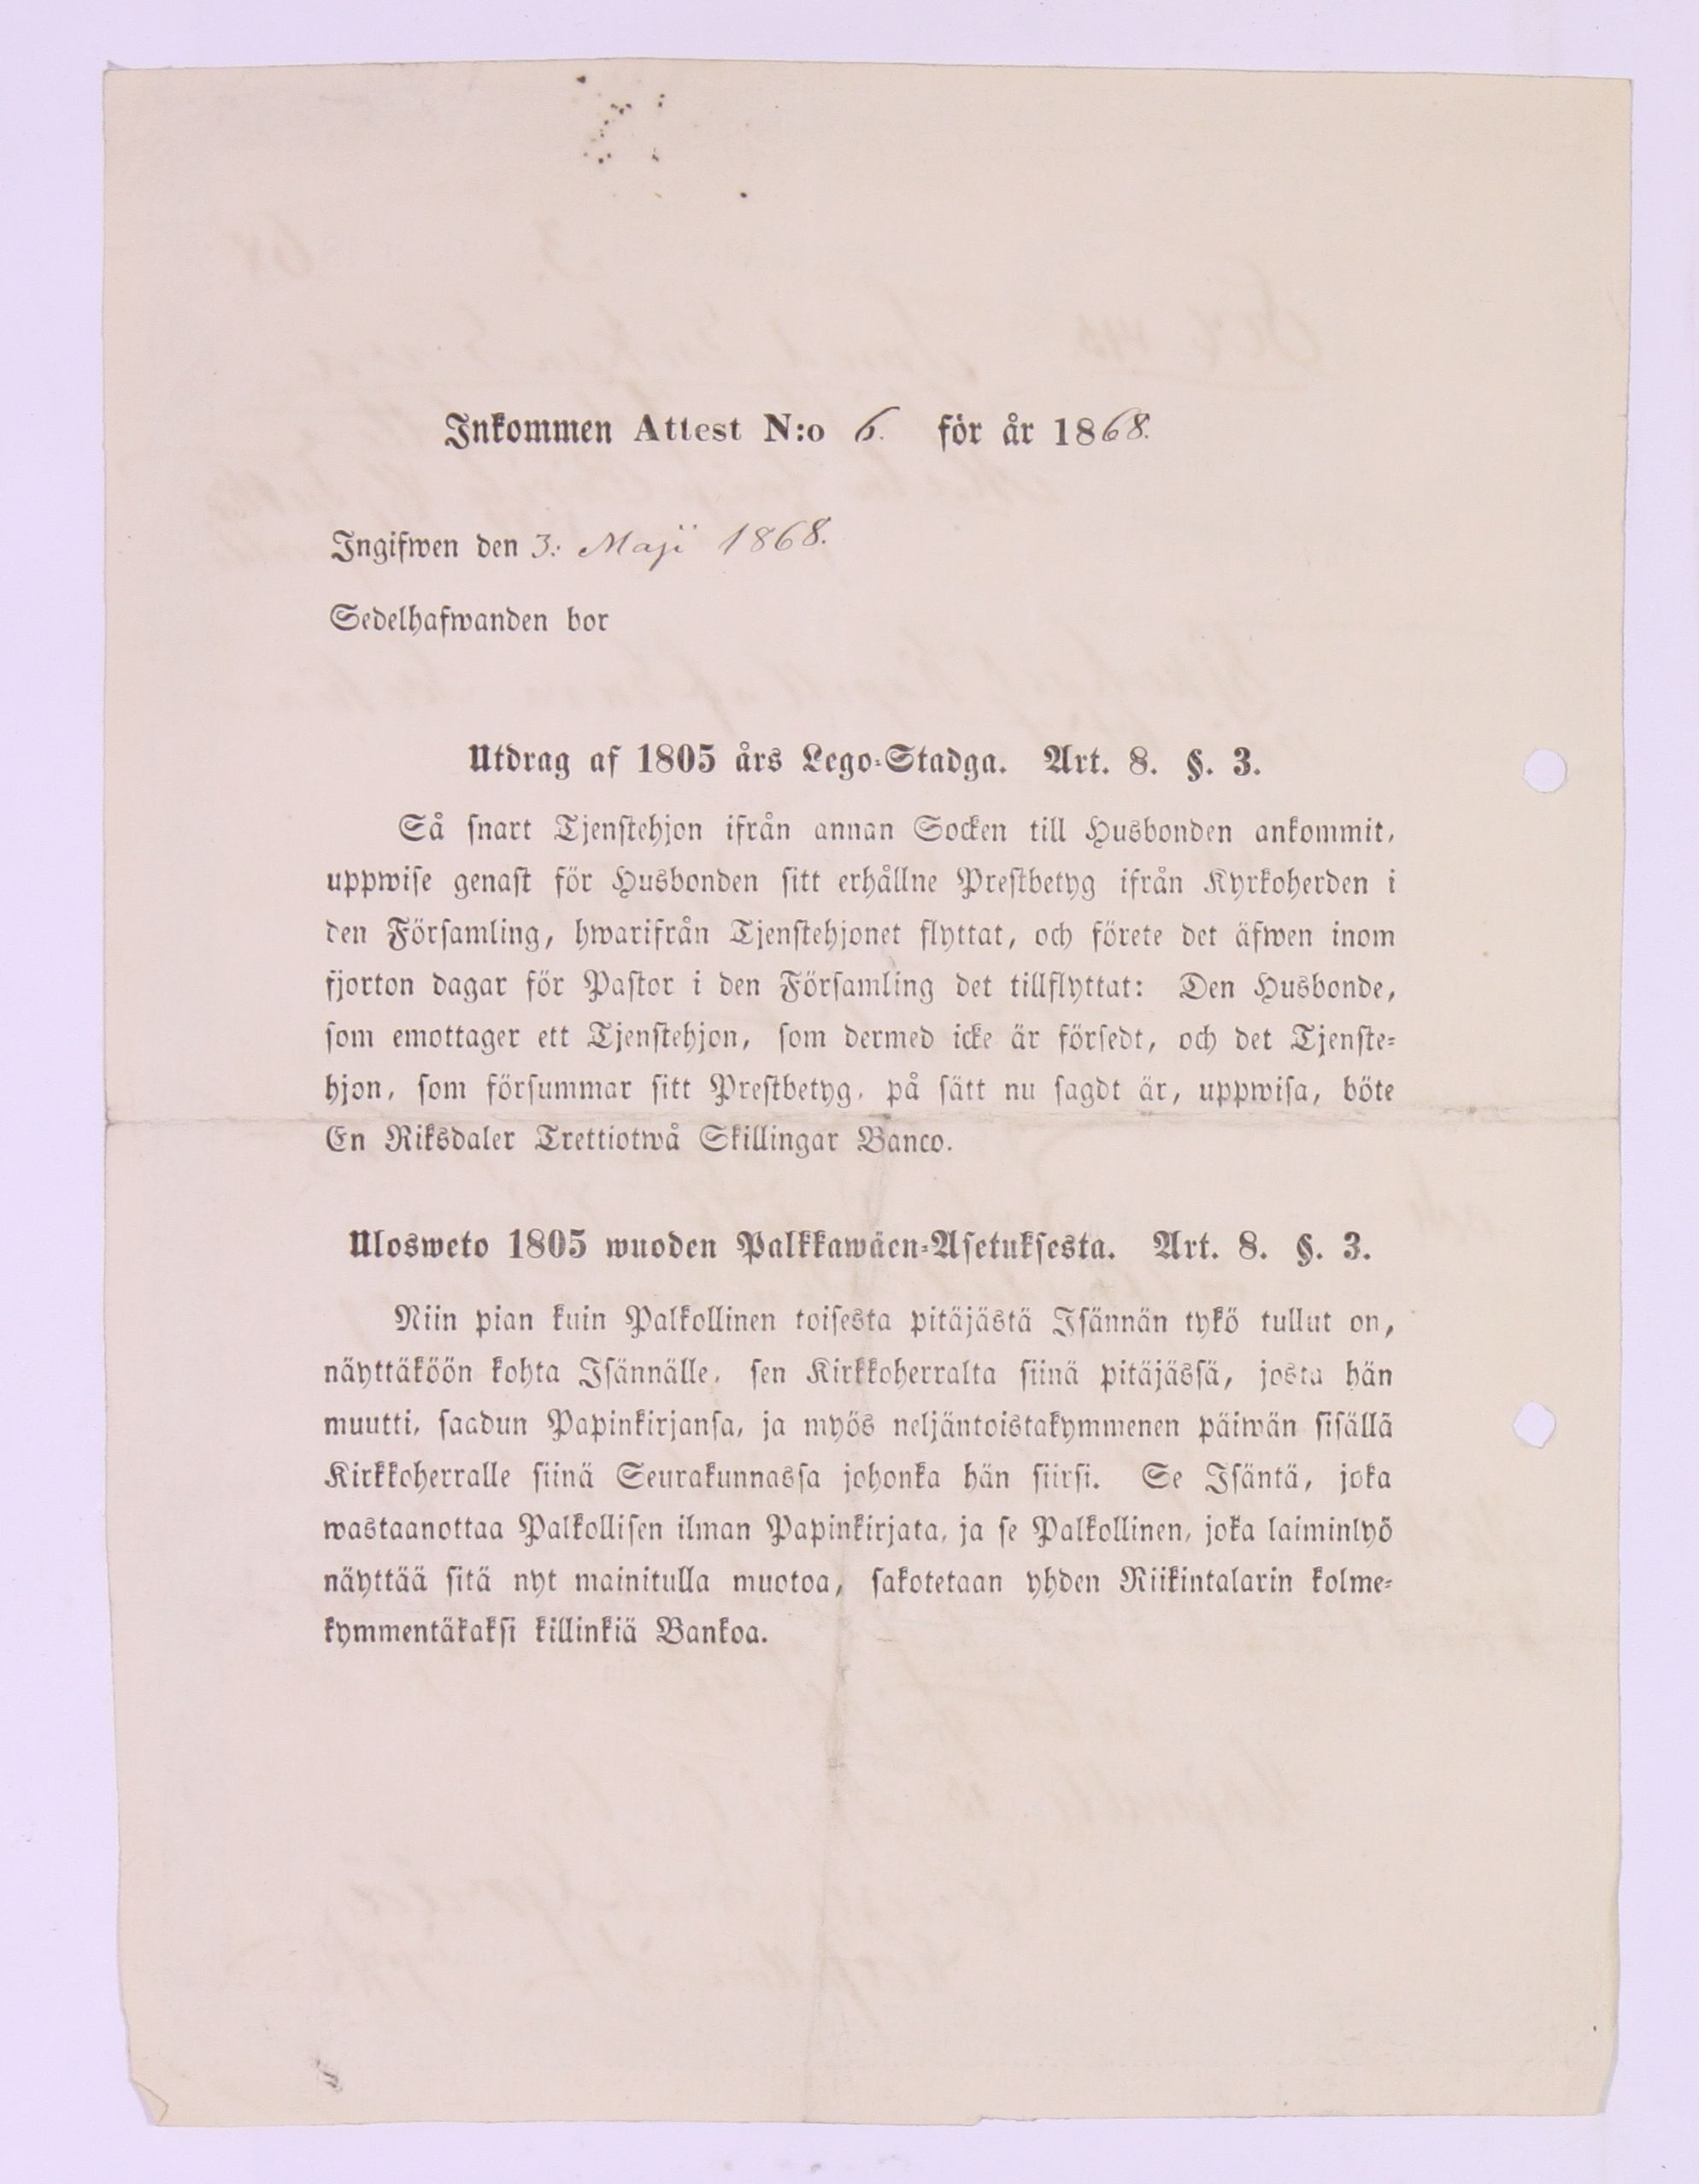 Inkommen Attest N:o 6. för år 1868.
Ingifwen den 3: Maji 1868.
Sedelhafwanden bor
Utdrag af 1805 års Lego-Stadga. Art. 8. §. 3.
Så snart Tjenstehjon ifrån annan Socken till Husbonden ankommit,
uppwise genast för Husbonden sitt erhållne Prestbetyg ifrån Kyrkoherden i
den Församling, hwarifrån Tjenstehjonet flyttat, och förete det äfwen inom
fjorton dagar för Pastor i den Församling det tillflyttat: Den Husbonde,
som emottager ett Tjenstehjon, som dermed icke är försedt, och det Tjenste-
hjon, som försummar sitt Prestbetyg, på sätt nu sagdt är, uppwisa, böte
En Riksdaler Trettiotwå Skillingar Banco.
Ulosweto 1805 wuoden Palkkawäen-Asetuksesta. Art. 8. §. 3.
Niin pian kuin Palkollinen toisesta pitäjästä Isännän tykö tullut on,
näyttäköön kohta Isännälle, sen Kirkkoherralta siinä pitäjässä, josta hän
muutti, saadun Papinkirjansa, ja myös neljäntoistakymmenen päiwän sisällä
Kirkkoherralle siinä Seurakunnassa johonka hän siirsi. Se Isäntä, joka
wastaanottaa Palkollisen ilman Papinkirjata, ja se Palkollinen, joka laiminlyö
näyttää sitä nyt mainitulla muotoa, sakotetaan yhden Riikintalarin kolme-
kymmentäkaksi killinkiä Bankoa.